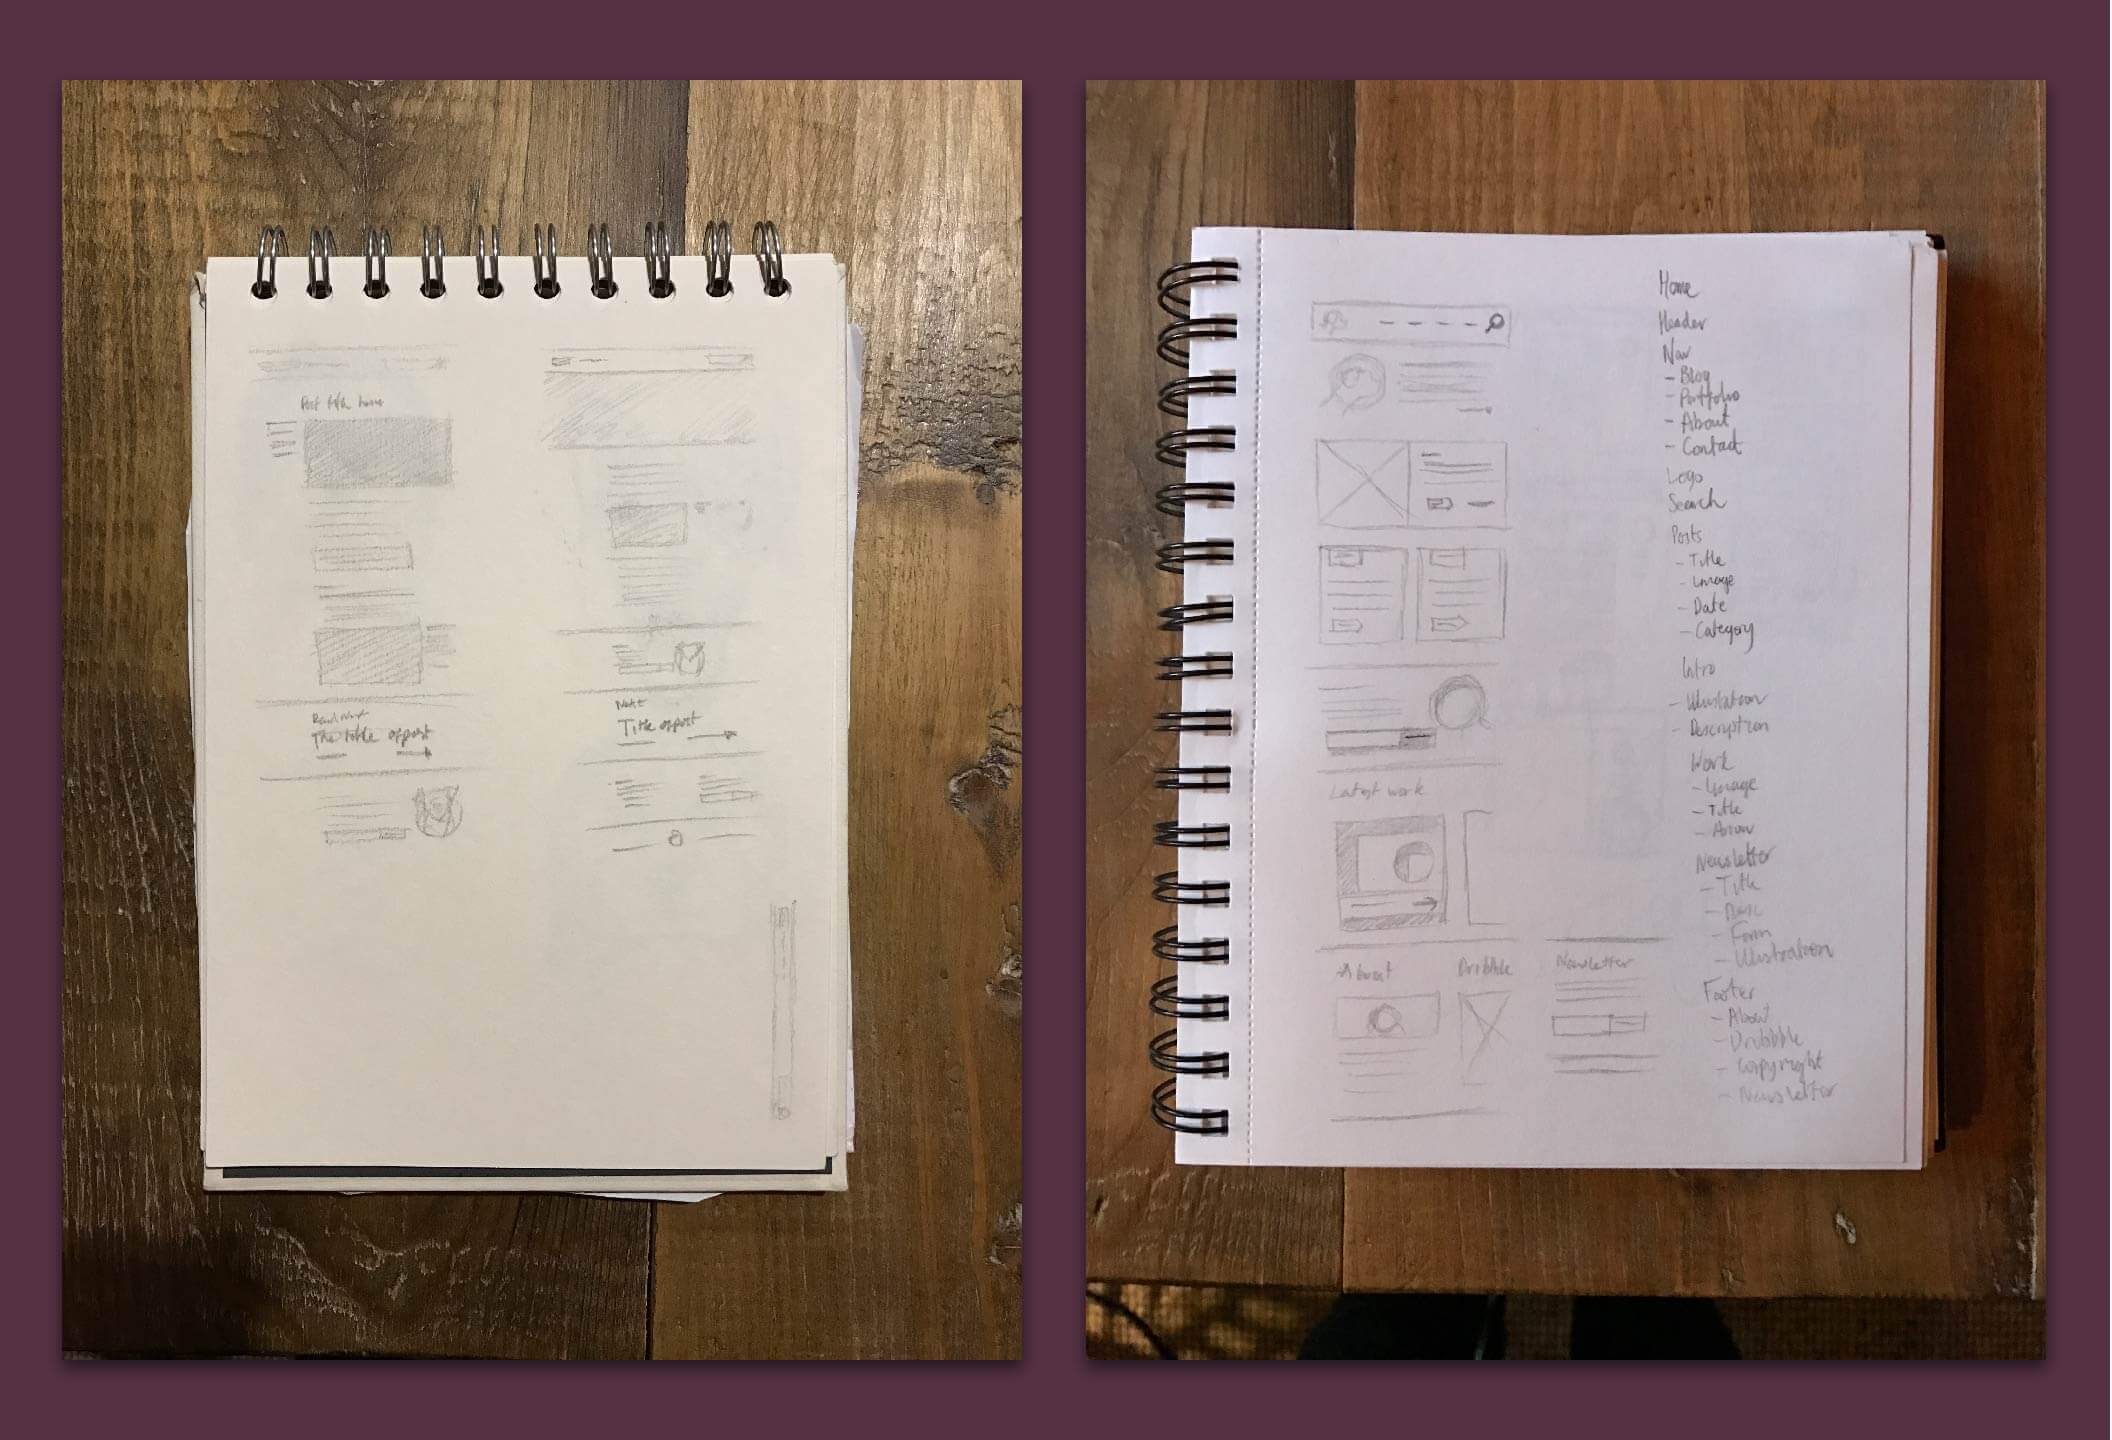 Post title here
Read next
The title of post
Next
Title of post
Latest work
About
Dribbble
Newsletter
Home
Header
Nav
- Blog
- Portfolio
- About
- Contact
Logo
Search
Posts
- Title
- Image
- Date
- Category
Intro
- Illustration
- Description
Work
- Image
- Title
- Arrow
Newsletter
- Title
- Desc
- Form
- Illustration
Footer
- About
- Dribbble
- Copyright
- Newsletter